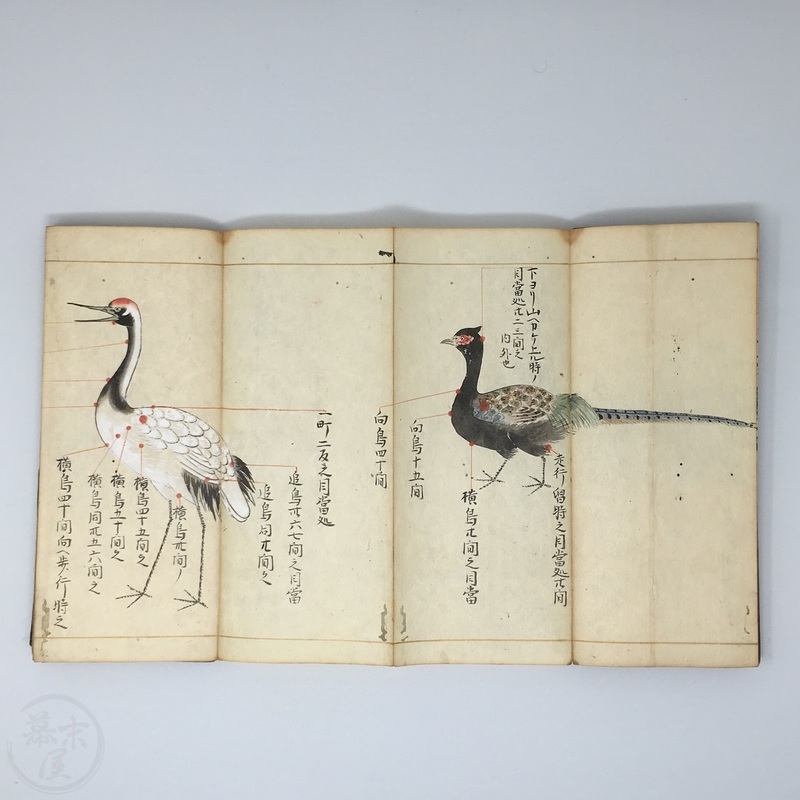 下ヨリ山ヘカケ上ル時ノ
目當処廾二三間之
内外也
走行留時之目當処廾間
横鳥廾間之目當
向鳥十五間
向鳥四十間
一町二反之目當処
追鳥廾六七間之目當
追鳥同廾間之
横鳥廾間ノ
横鳥四十五間之
横鳥五十間之
横鳥同廾五六間之
横鳥四十間向ヘ歩行時之
幕末屋